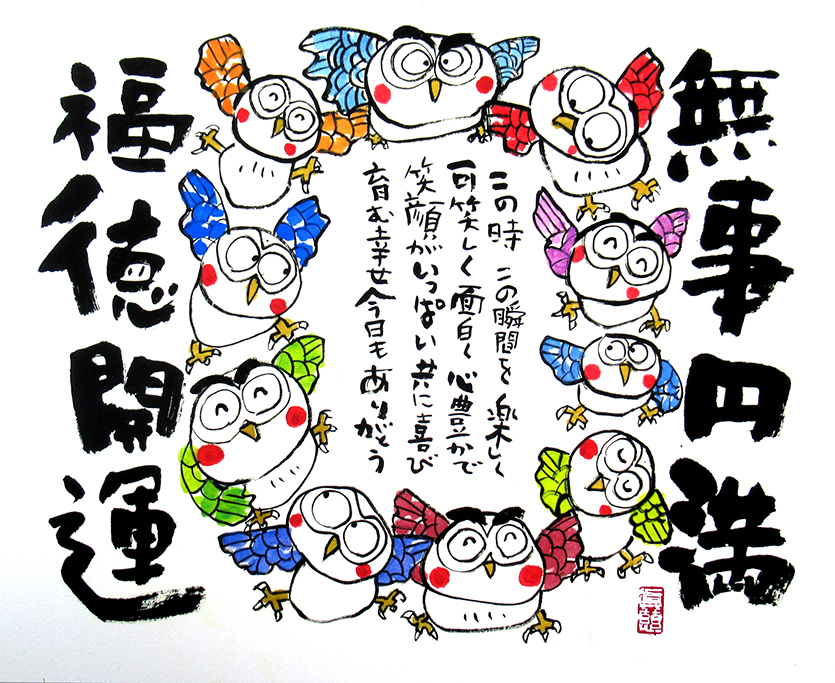 無事円満
この時 この瞬間を 楽しく
可笑しく 面白く 心豊かで
笑顔がいっぱい 共に喜び
育む幸せ 今日も ありがとう
福徳開運